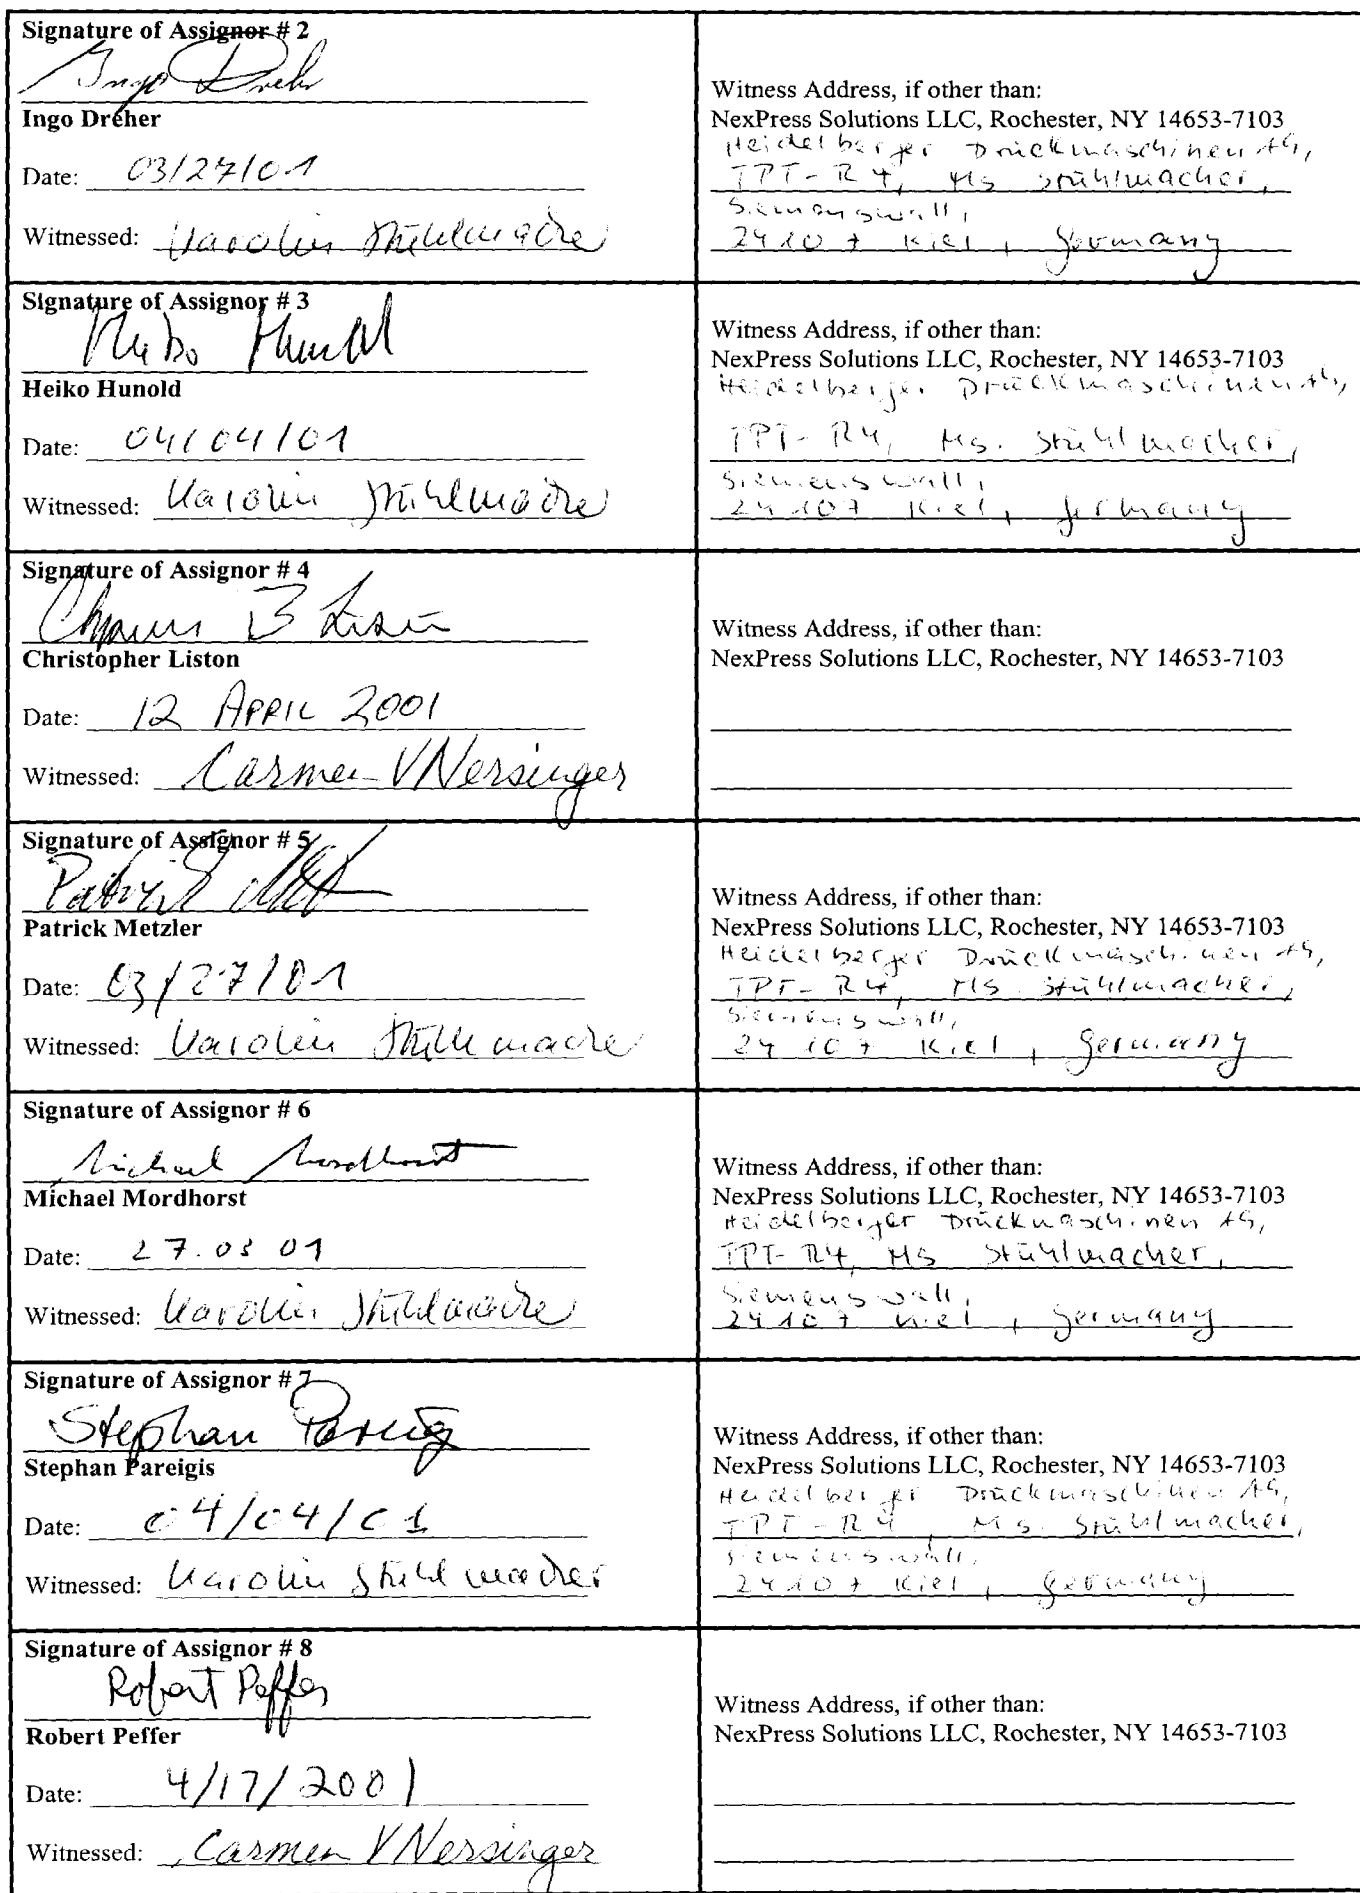 Signature of Assignor # 2
Ingo Dreher
Ingo Dreher
Date: 03/27/01
Witnessed: Karolin Stuhlmacher
Witness Address, if other than:
NexPress Solutions LLC, Rochester, NY 14653-7103
Heidelberger Druckmaschinen AG,
TPT-R4, Ms Stuhlmacher,
Siemenswall,
24107 Kiel, Germany
Signature of Assignor # 3
Heiko Hunold
Heiko Hunold
Date: 04/04/01
Witnessed: Karolin Stuhlmacher
Witness Address, if other than:
NexPress Solutions LLC, Rochester, NY 14653-7103
Heidelberger Druckmaschinen AG,
TPT-R4, Ms. Stuhlmacher,
Siemenswall,
24107 Kiel, Germany
Signature of Assignor # 4
Christopher Liston
Date: 12 APRIL 2001
Witnessed: Carmen V Nersinger
Witness Address, if other than:
NexPress Solutions LLC, Rochester, NY 14653-7103
Signature of Assignor # 5
Patrick
Patrick Metzler
Date: 03/27/01
Witnessed: Karolin Stuhlmacher
Witness Address, if other than:
NexPress Solutions LLC, Rochester, NY 14653-7103
Heidelberger Druckmaschinen AG,
TPT-R4, Ms. Stuhlmacher,
Siemenswall,
24107 Kiel, Germany
Signature of Assignor # 6
Michael Mordhorst
Michael Mordhorst
Date: 27.03 01
Witnessed: Karolin Stuhlmacher
Witness Address, if other than:
NexPress Solutions LLC, Rochester, NY 14653-7103
Heidelberger Druckmaschinen AG,
TPT-R4, Ms Stuhlmacher,
Siemenswall,
24107 Kiel, Germany
Signature of Assignor # 7
Stephan Pareigis
Stephan Pareigis
Date: 04/04/01
Witnessed: Karolin Stuhlmacher
Witness Address, if other than:
NexPress Solutions LLC, Rochester, NY 14653-7103
Heidelberger Druckmaschinen AG,
TPT-R4, Ms. Stuhlmacher,
Siemenswall,
24107 Kiel, Germany
Signature of Assignor # 8
Robert Peffer
Robert Peffer
Date: 4/17/2001
Witnessed: Carmen V Nersinger
Witness Address, if other than:
NexPress Solutions LLC, Rochester, NY 14653-7103